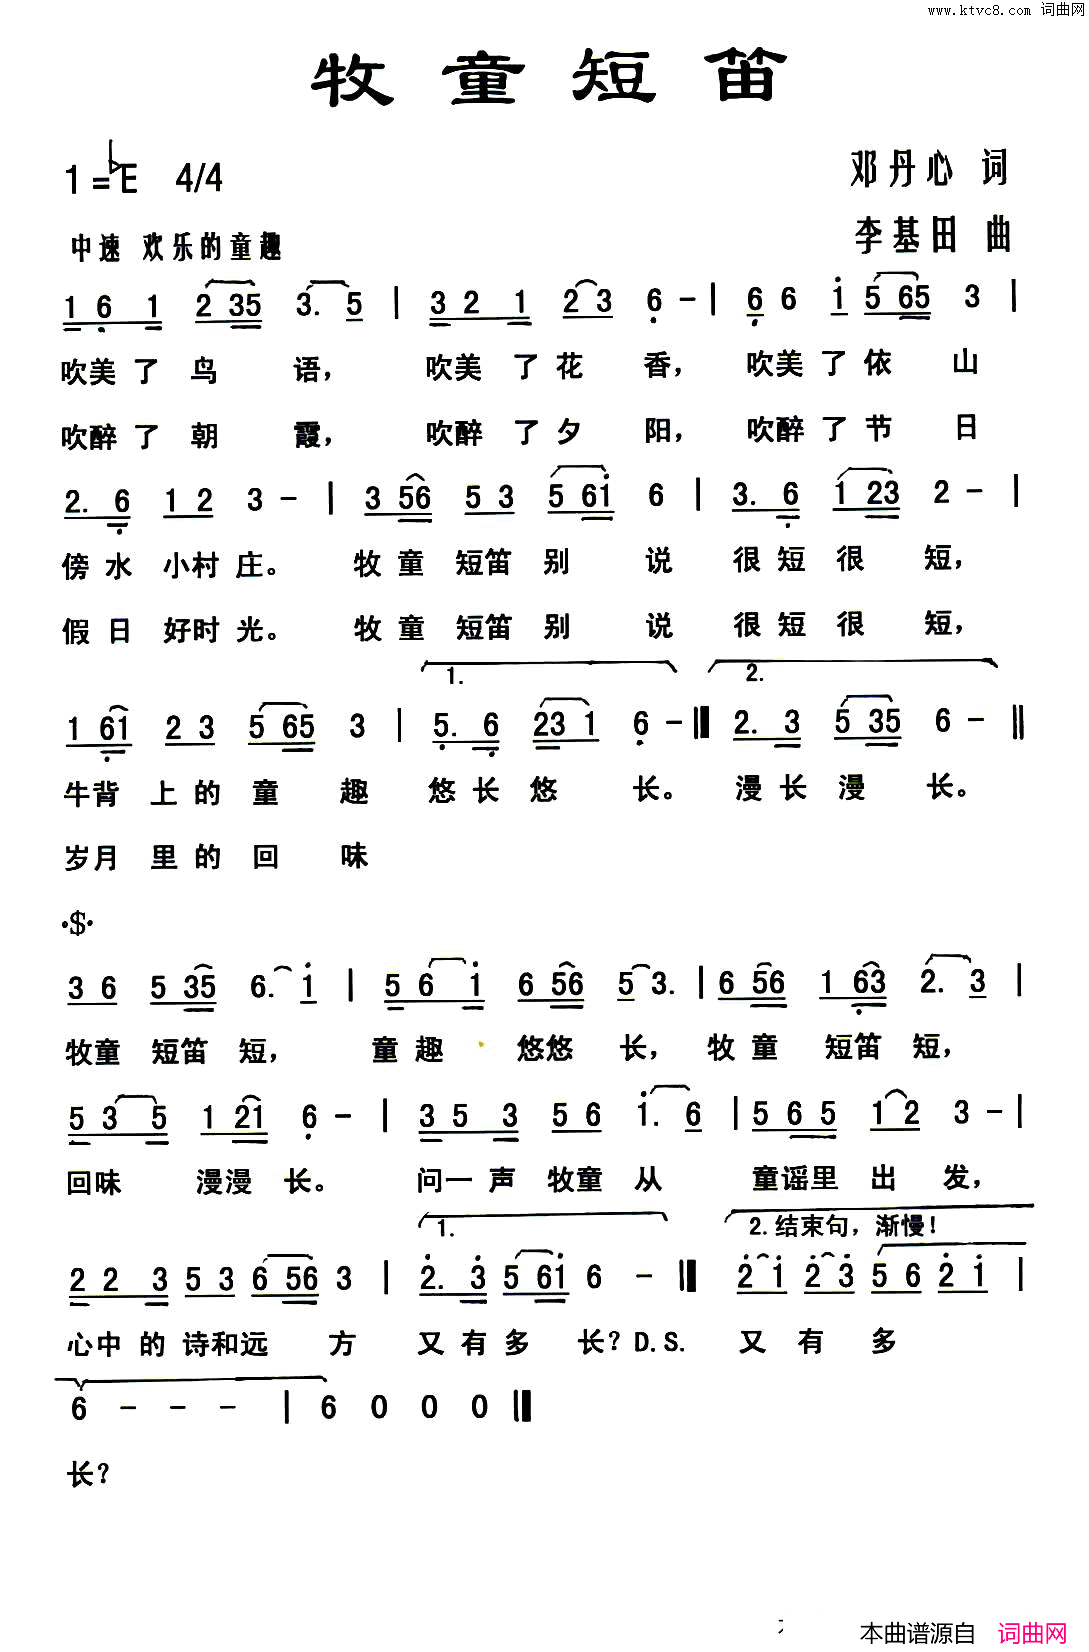 www.ktvc8.com 词曲网
牧童短笛
1=♭E 4/4
邓丹心 词
中速 欢乐的童趣
李基田 曲
1 6 1 2 35 3. 5 | 3 2 1 2 3 6 - | 6 6 i 5 65 3 |
吹美了鸟语，吹美了花香，吹美了依山
吹醉了朝霞，吹醉了夕阳，吹醉了节日
2. 6 1 2 3 - | 3 56 5 3 5 6i 6 | 3. 6 1 23 2 - |
傍水小村庄。牧童短笛别说很短很短，
假日好时光。牧童短笛别说很短很短，
1. 2.
1 61 2 3 5 65 3 | 5. 6 23 1 6 - 2. 3 5 35 6 - ‖
牛背上的童趣悠长悠长。漫长漫长。
岁月里的回味
·$·
3 6 5 35 6. i | 5 6 i 6 56 5 3. | 6 56 1 63 2. 3 |
牧童短笛短，童趣悠悠长，牧童短笛短，
5 3 5 1 21 6 - | 3 5 3 5 6 i. 6 | 5 6 5 1 2 3 - |
回味漫漫长。问一声牧童从童谣里出发，
1. 2.结束句，渐慢！
2 2 3 5 3 6 56 3 | 2. 3 5 6i 6 - 2 i 2 3 5 6 2 i |
心中的诗和远方又有多长？D.S. 又有多
6 - - - | 6 0 0 0
长？
本曲谱源自 词曲网